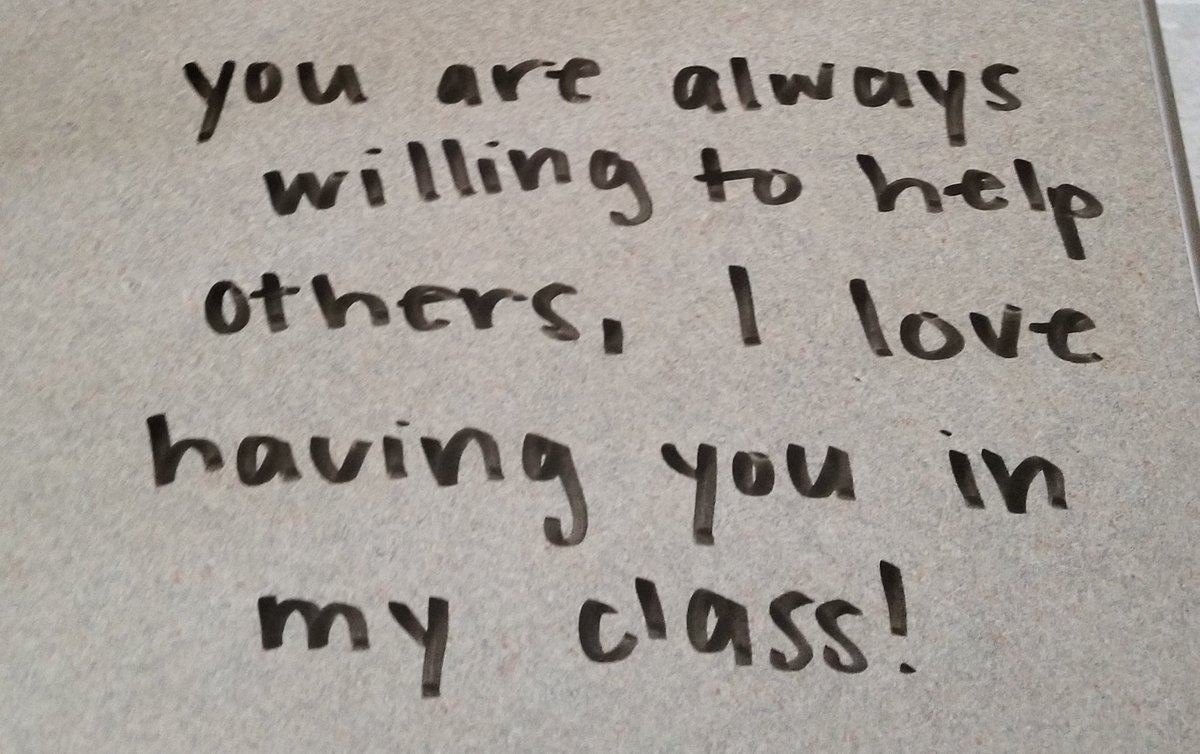 you are always
willing to help
others, I love
having you in
my class!